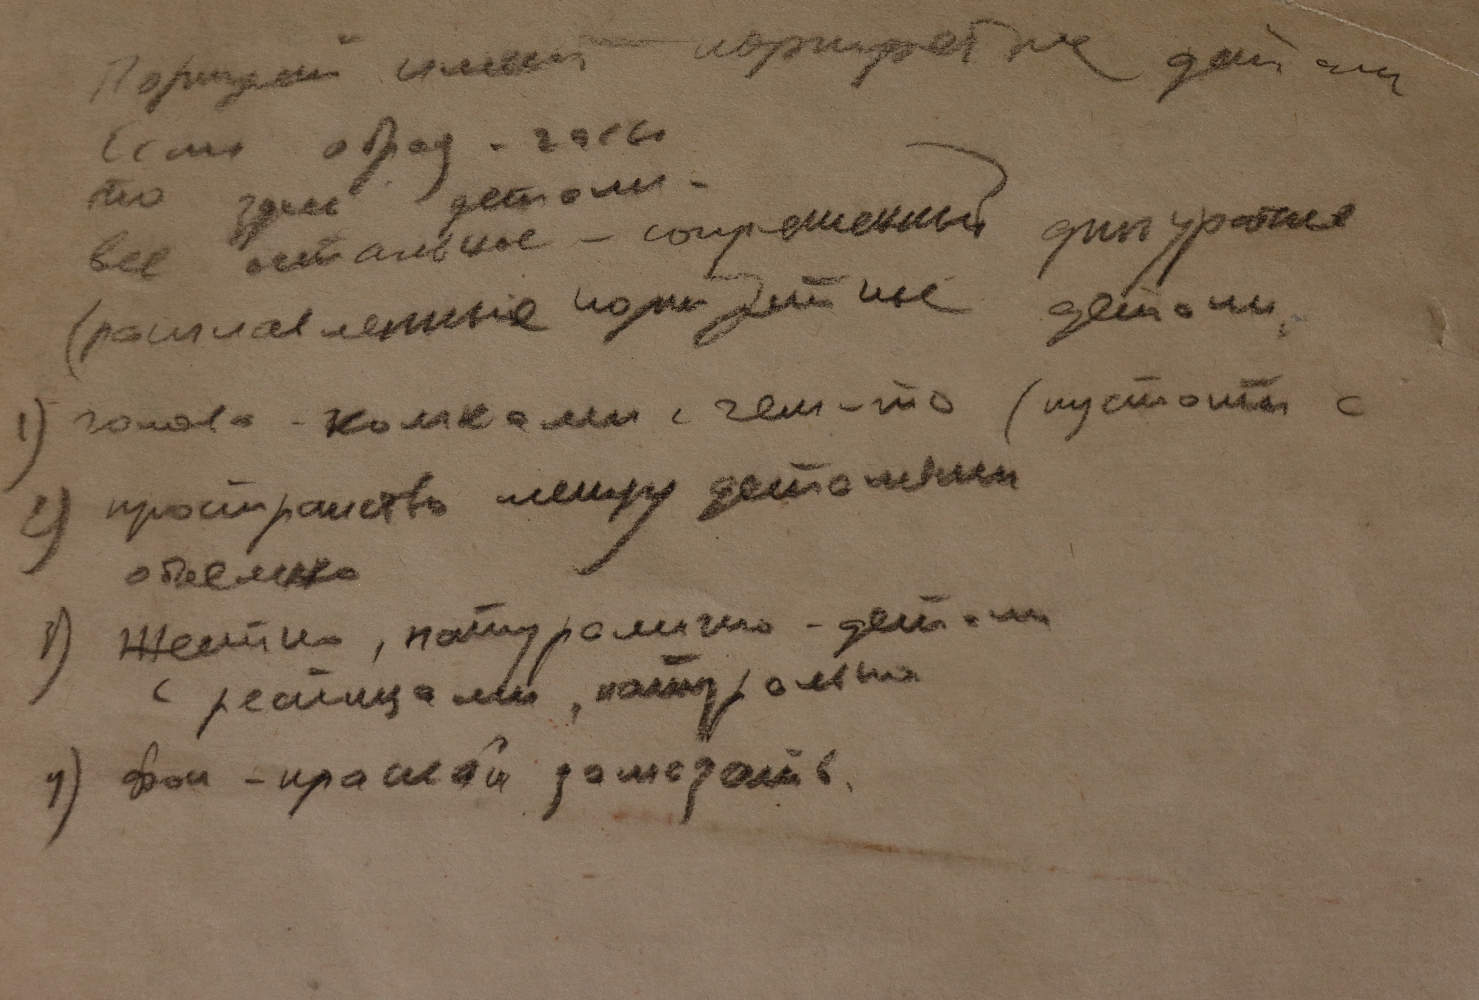 Портрет имеет портретные детали
Если образ - часы
то здесь детали -
все остальное - современный фигуратив
(расплавленные портретные детали,
1) голова - комками с чем-то (пустоты с
2) пространство между деталями
объемно
3) Жестко, натуралично - детали
с ресницами, натурально
4) Фон - краской замазать.